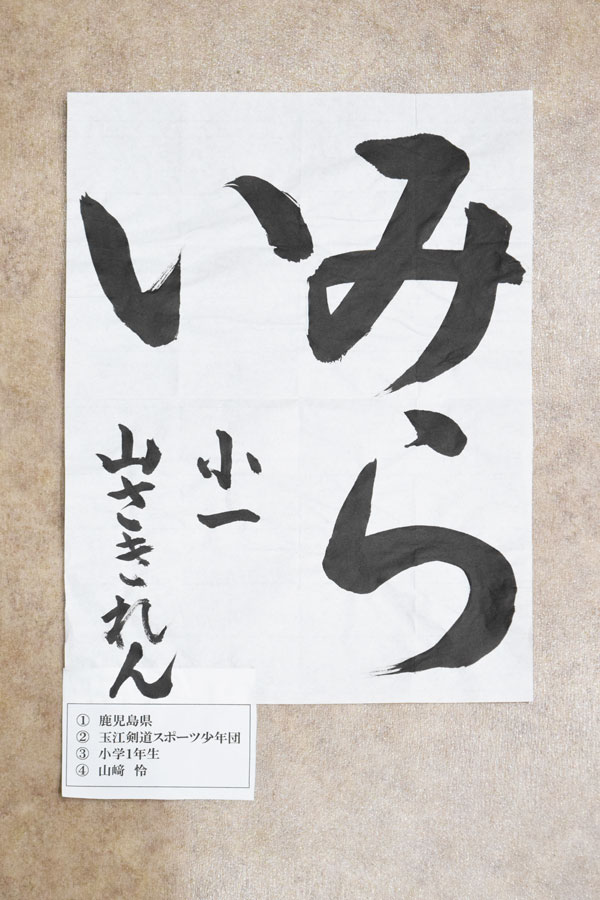 みら
い
小一
山さきれん
① 鹿児島県
② 玉江剣道スポーツ少年団
③ 小学1年生
④ 山﨑 怜